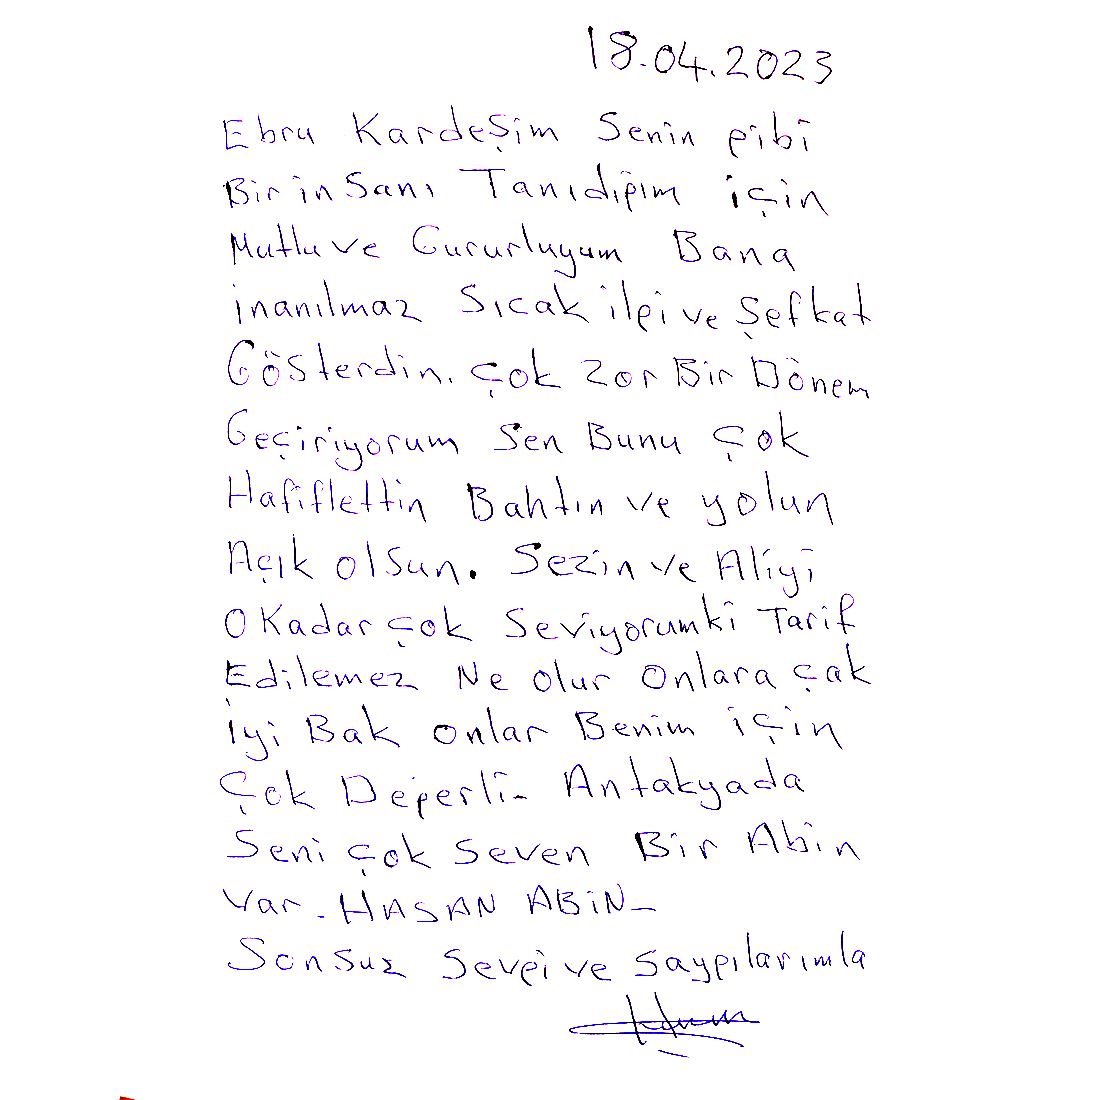 18.04.2023
Ebru Kardeşim Senin gibi
Bir insanı Tanıdığım için
Mutlu ve Gururluyum Bana
inanılmaz Sıcak ilgi ve Şefkat
Gösterdin. Çok Zor Bir Dönem
Geçiriyorum Sen Bunu Çok
Hafiflettin Bahtın ve yolun
Açık olsun. Sezin ve Aliyi
O Kadar çok Seviyorumki Tarif
Edilemez Ne olur Onlara çak
iyi Bak onlar Benim için
Çok Değerli- Antakyada
Seni çok seven Bir Abin
Var - HASAN ABiN-
Sonsuz Sevgi ve saygılarımla